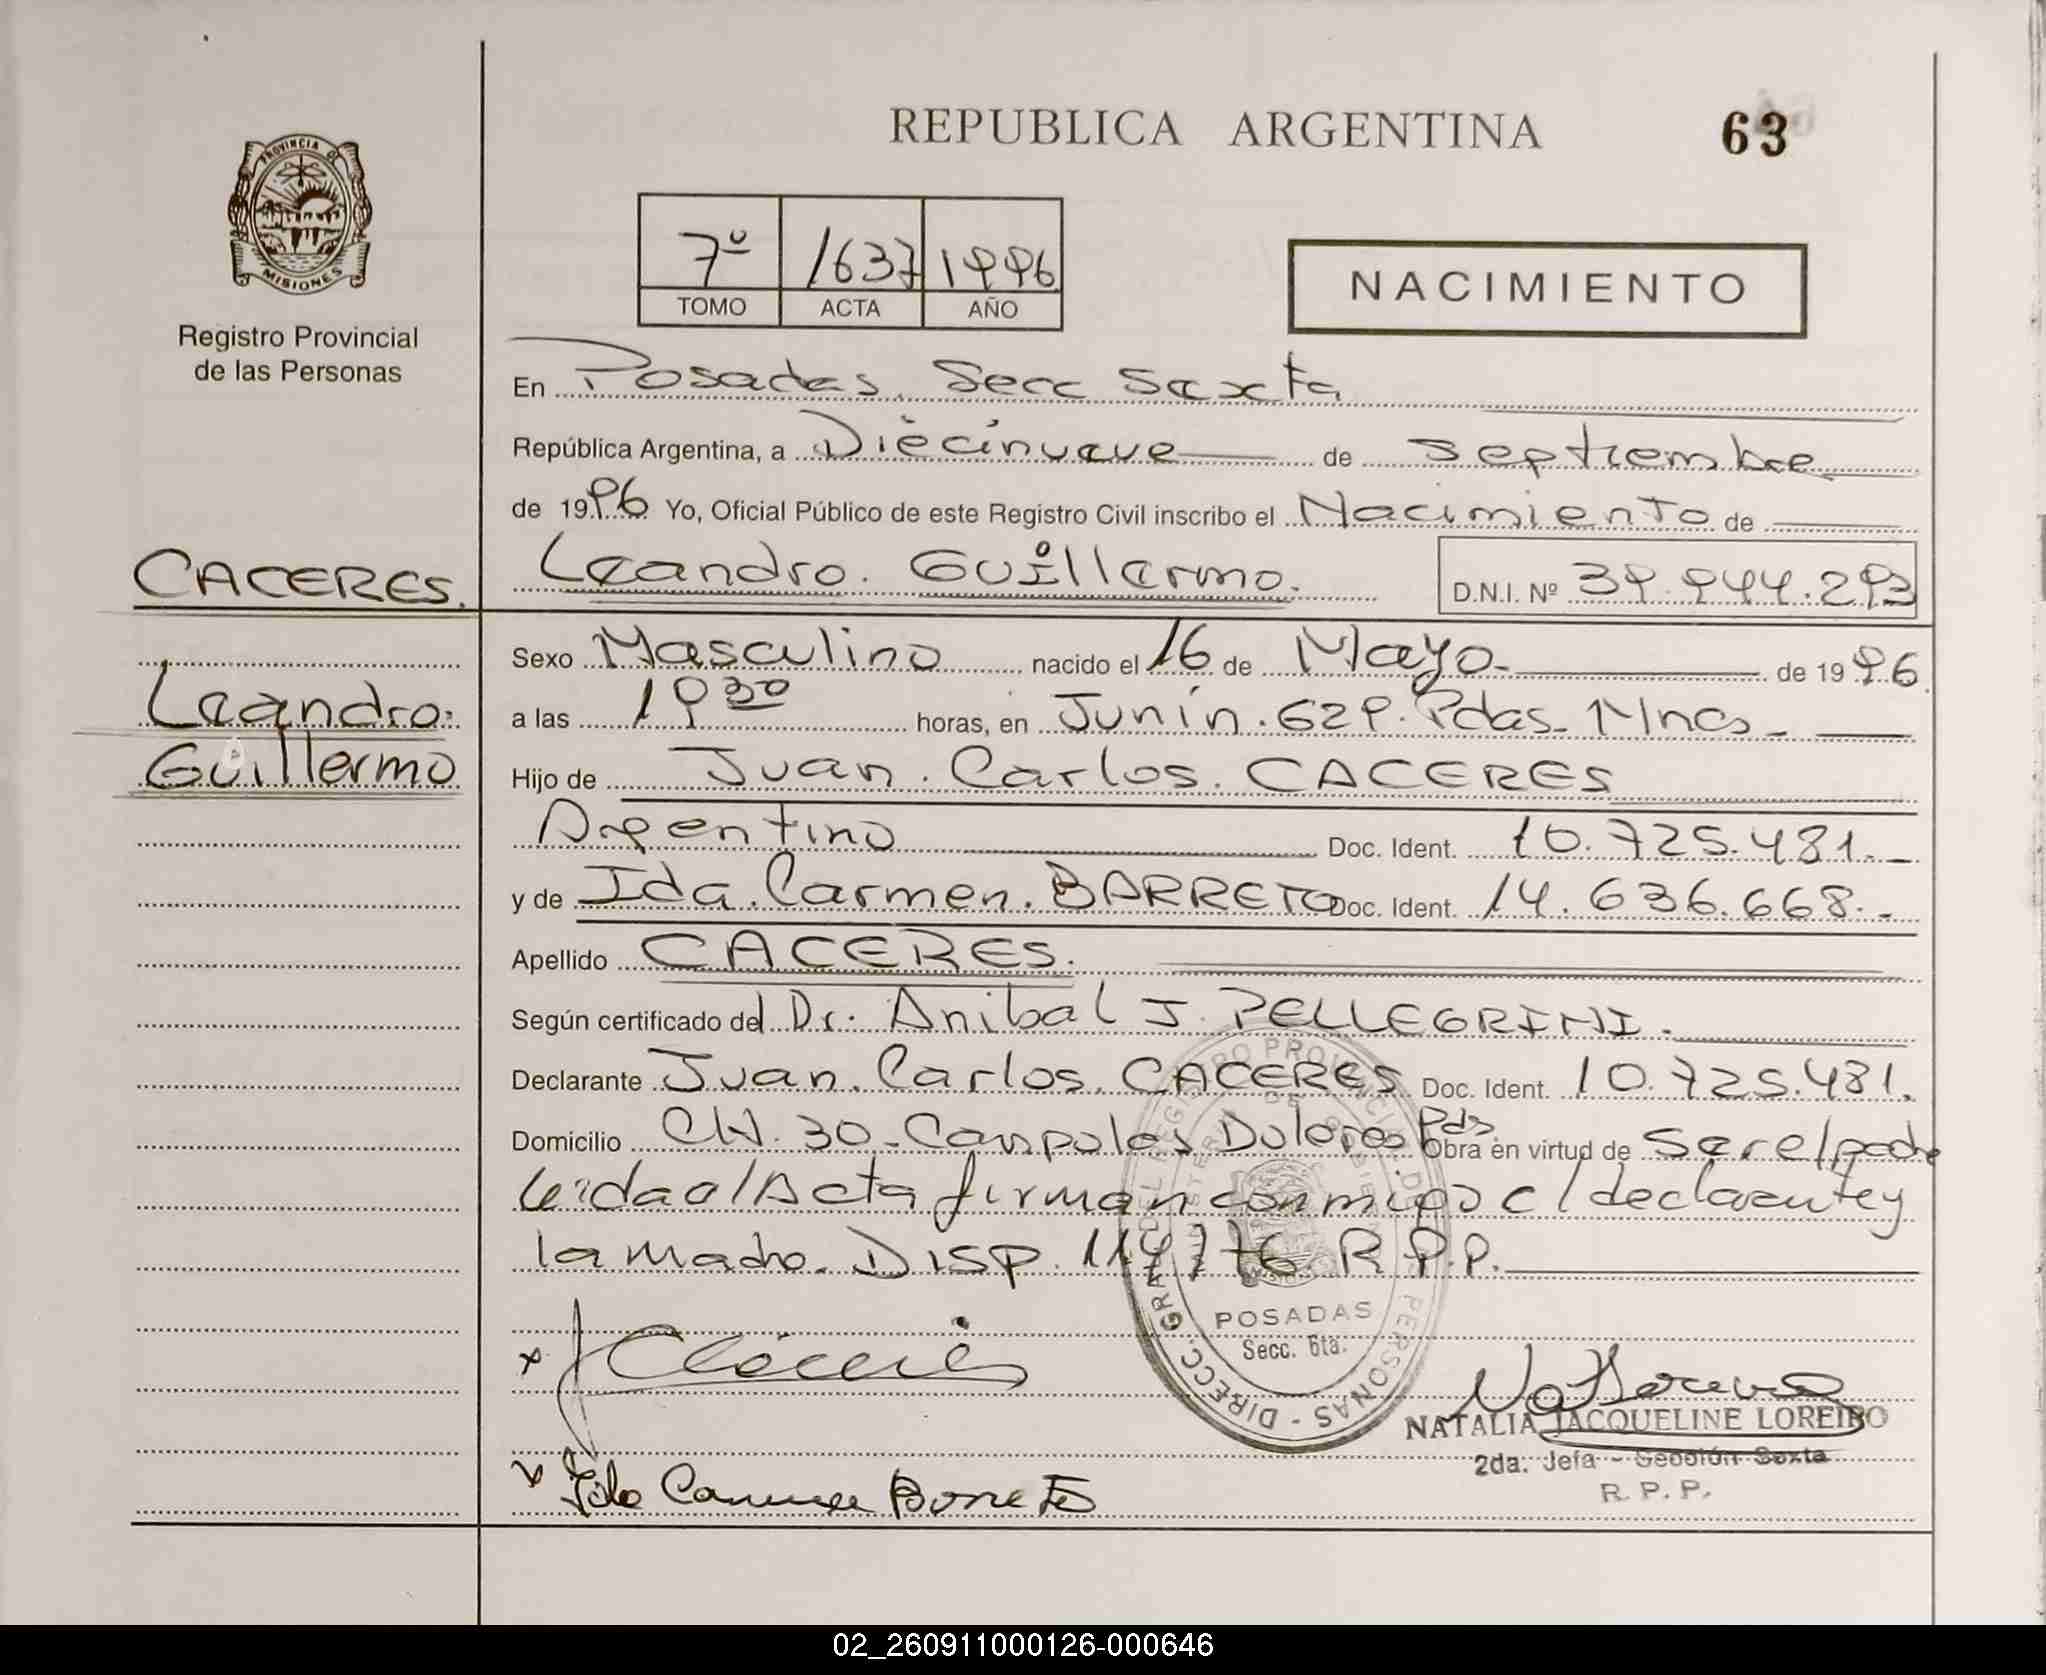 REPUBLICA ARGENTINA
63
PROVINCIA DE
MISIONES
Registro Provincial
de las Personas
7º 1637 1996
TOMO ACTA AÑO
NACIMIENTO
En Posadas. Secc Sexta
República Argentina, a Diecinueve de septiembre
de 1996 Yo, Oficial Público de este Registro Civil inscribo el Nacimiento de
CACERES.
Leandro. Guillermo. D.N.I. Nº 39.944.293
Sexo Masculino nacido el 16 de Mayo. de 1996
Leandro.
Guillermo
a las 19 30 horas, en Junín. 629. Pdas. Mnes
Hijo de Juan. Carlos. CACERES
Argentino Doc. Ident. 10.725.481.
y de Ida. Carmen. BARRETO Doc. Ident. 14.636.668.
Apellido CACERES.
Según certificado del Dr. Anibal J. PELLEGRINI.
Declarante Juan. Carlos. CACERES Doc. Ident. 10.725.481.
Domicilio CH. 30 - Dolores Pds Obra en virtud de ser el padre
Leida el Acta firman conmigo e/ declarante y
la madre. Disp. 119/76 R.P.P.
DIRECC. GRAL. DEL REGISTRO PROVINCIAL DE LAS PERSONAS
POSADAS
Secc. 6ta.
x Cáceres
x Ida Carmen Barreto
NATALIA JACQUELINE LOREIRO
2da. Jefa - Sección Sexta
R. P. P.
02_260911000126-000646